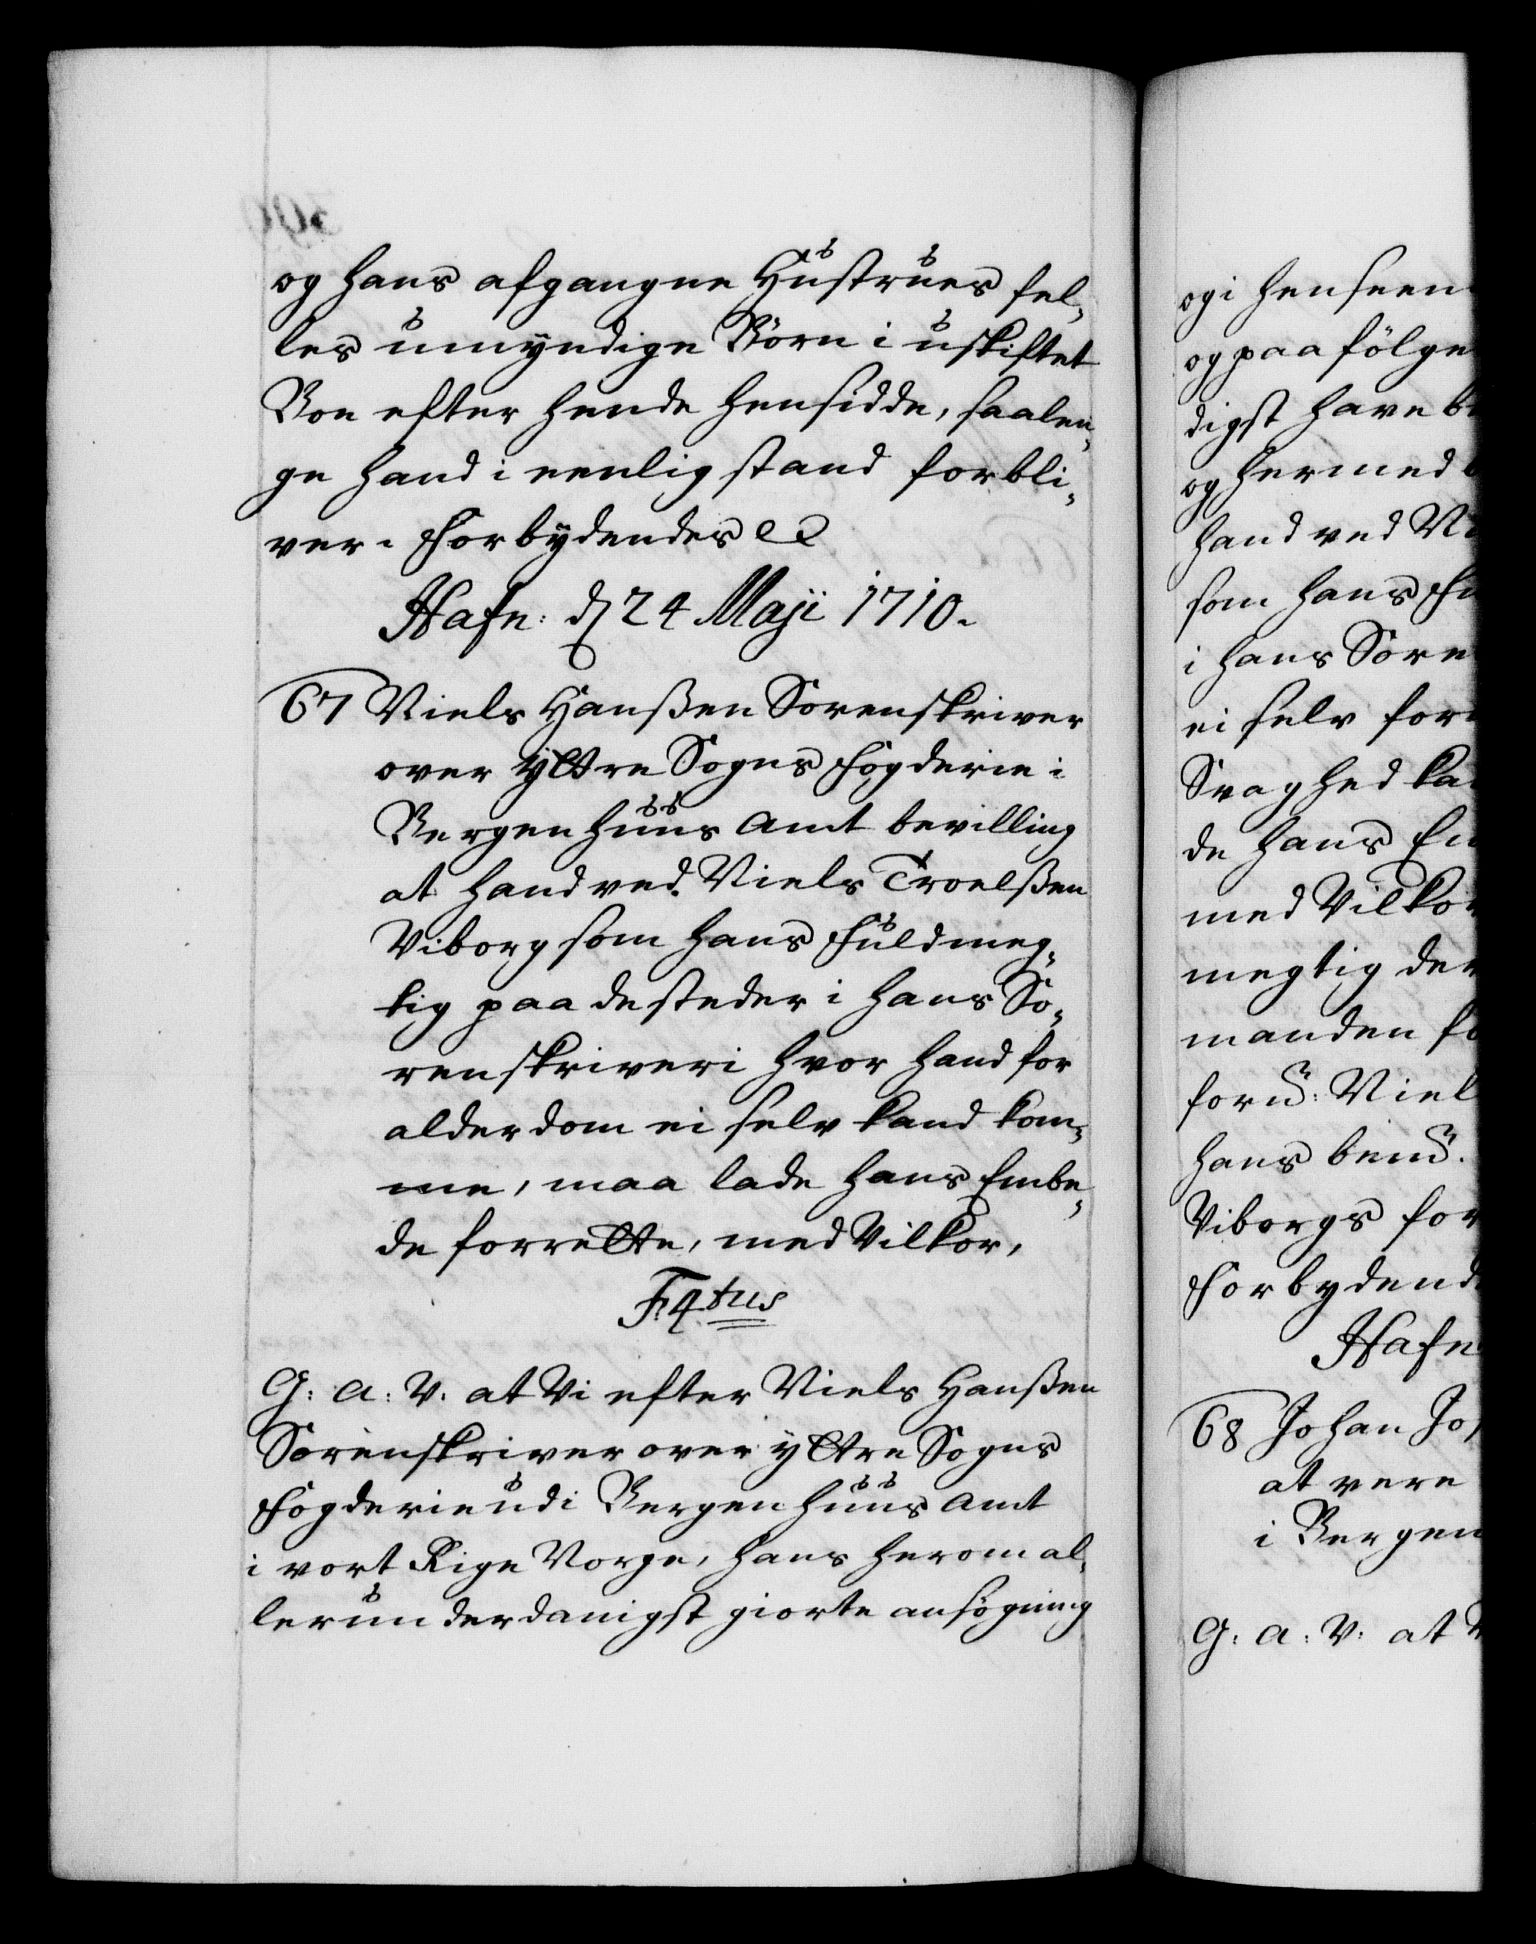 og hans afgangne Hustrues fel-
les umyndige Børn i uskiftet
Boe efter hende hensidde, saalen-
ge hand i eenlig stand forbli-
ver. Forbydendes &c
Hafn: d 24 Maji 1710.
67 Niels Hanßen Sorenskriver
over Yttre Sogns Fogderie i
Bergenhuus Amt bevilling
at hand ved Niels Troelßen
Viborg som hans Fuldmeg-
tig paa de steder i hans So-
renskriveri hvor hand for
alderdom ei selv kand kom-
me, maa lade hans Embe-
de forrette, med Vilkor,
F. 4tus
G: A: V: at Vi efter Niels Hanßen
Sorenskriver over Yttre Sogns
Fogderie udi Bergenhuus Amt
i vort Rige Norge, hans herom al-
lerunderdanigst giorte ansøgning
og i henseen
og paa følge
digst have be
og hermed b
hand ved Ni
som hans Fu
i hans Soren
ei selv for
Svaghed ka
de hans Em
med Vilkor
megtig der
manden fo
forn: Niel
hans ben.
Viborgs for
Forbydend
Hafn
68 Johan Jo
at vere
i Bergen
G: A: V: at V